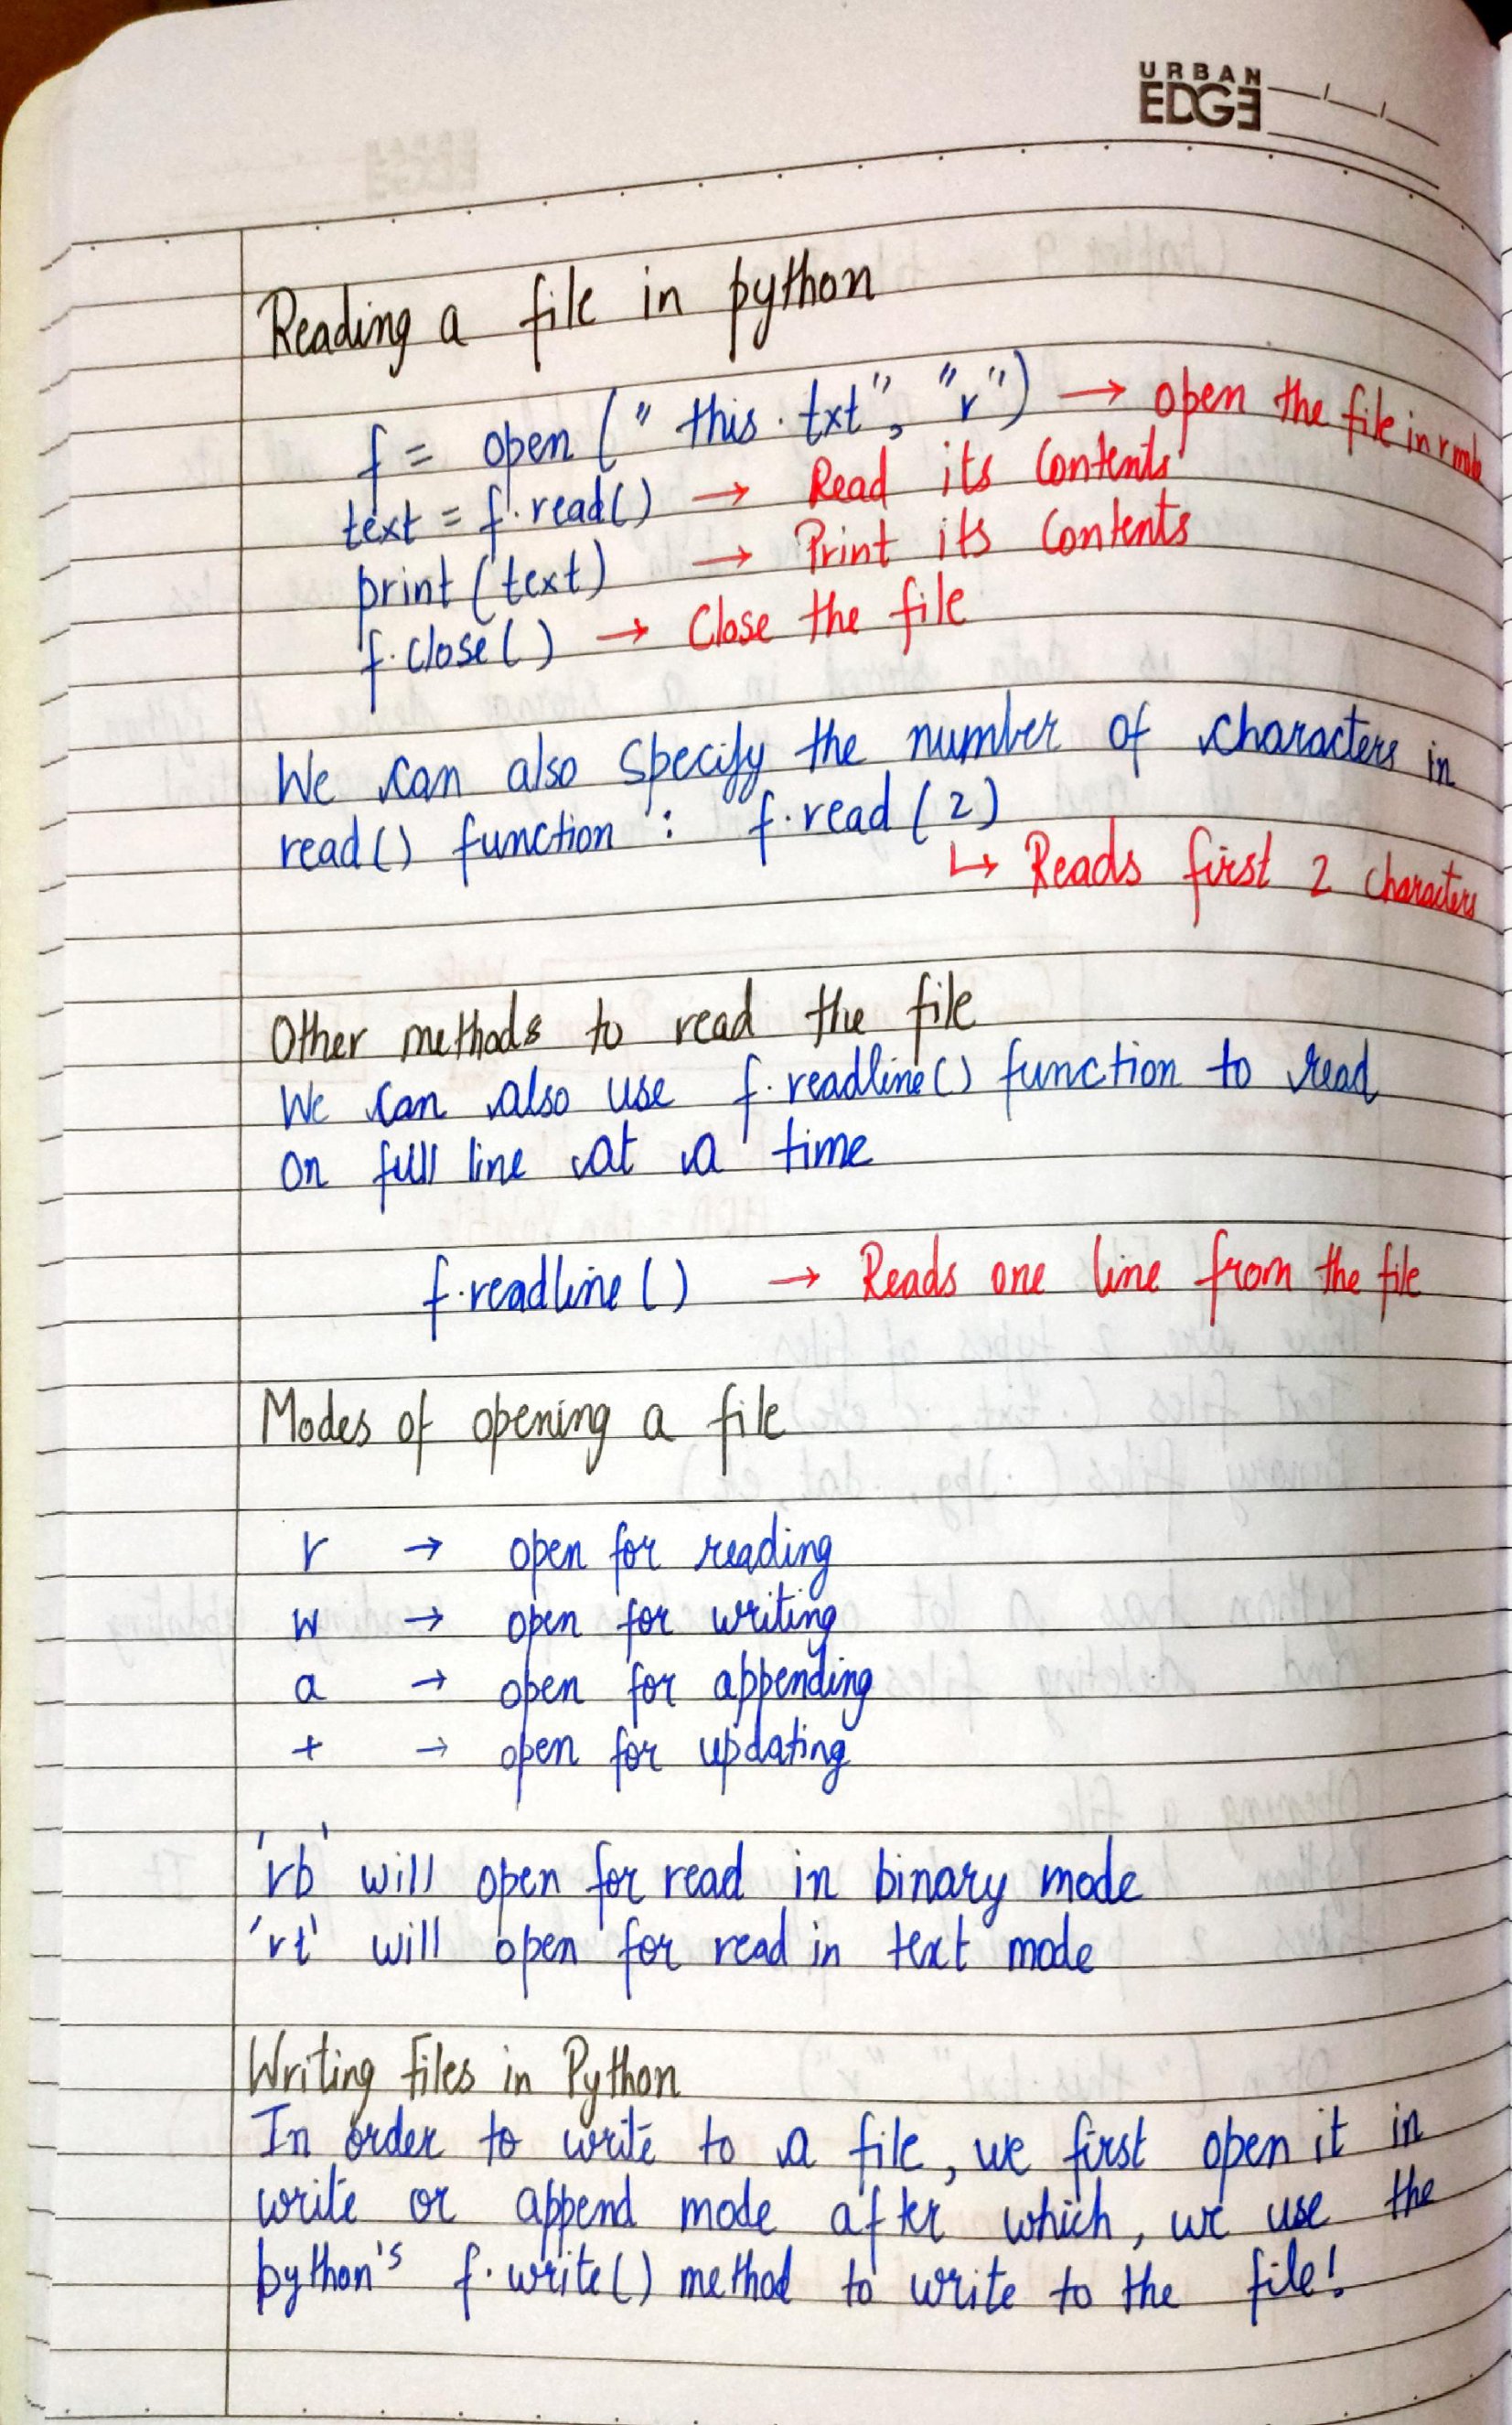 URBAN
EDGE
Reading a file in python
f = open ("this.txt", "r") → open the file in r mode
text = f.read() → Read its contents
print (text) → Print its contents
f.close() → Close the file
We can also specify the number of characters in
read() function : f.read (2)
↳ Reads first 2 characters
Other methods to read the file
We can also use f.readline() function to read
on full line at a time
f.readline () → Reads one line from the file
Modes of opening a file
r → open for reading
w → open for writing
a → open for appending
+ → open for updating
'rb' will open for read in binary mode
'rt' will open for read in text mode
Writing files in Python
In order to write to a file, we first open it in
write or append mode after which, we use the
python's f.write() method to write to the file!